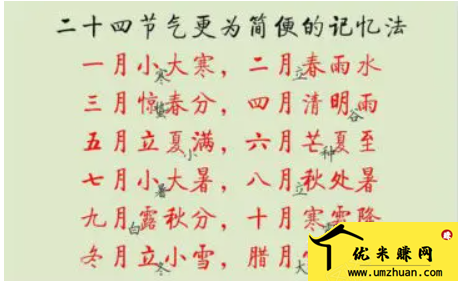 二十四节气更为简便的记忆法
一月小寒大寒，二月立春雨水
三月惊蛰春分，四月清明谷雨
五月立夏小满，六月芒种夏至
七月小暑大暑，八月立秋处暑
九月白露秋分，十月寒露降
冬月立冬小雪，腊月大
优米赚网
www.umzhuan.com